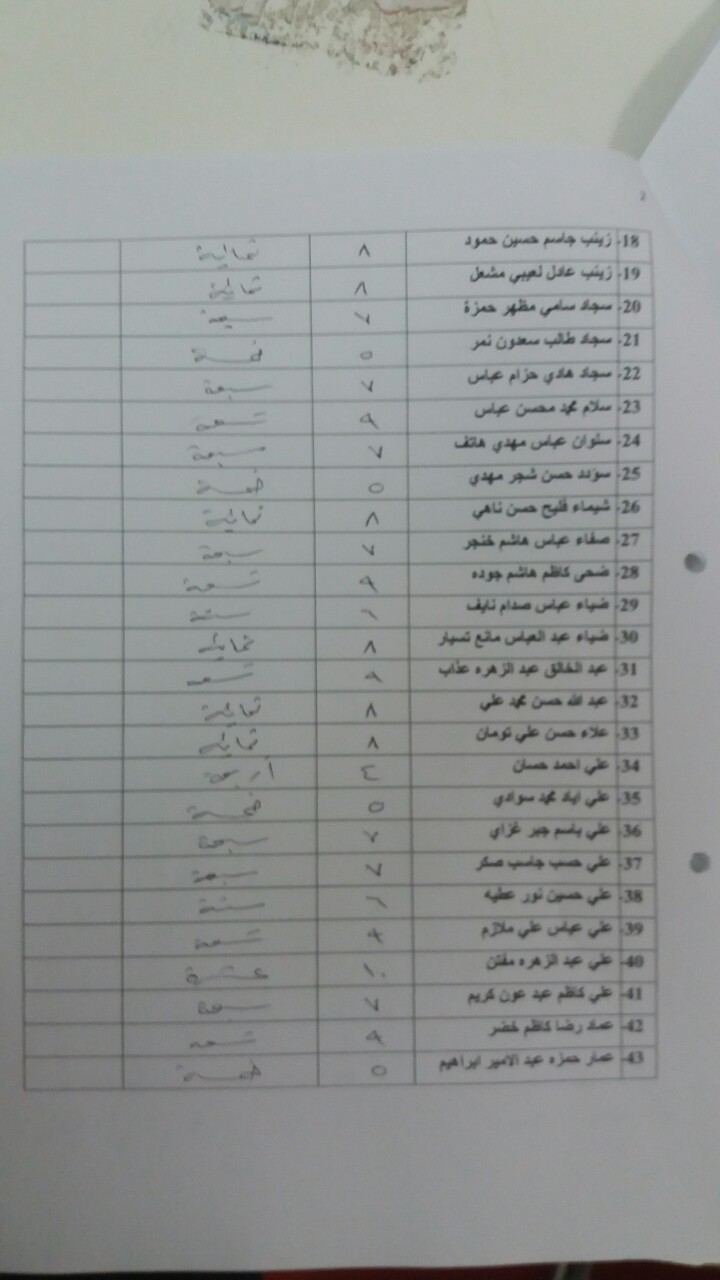 2
18- زينب جاسم حسين حمود ٨ ثمانية
19- زينب عادل لعيبي مشعل ٨ ثمانية
20- سجاد سامي مظهر حمزة ٧ سبعة
21- سجاد طالب سعدون نمر ٥ خمسة
22- سجاد هادي حزام عباس ٧ سبعة
23- سلام محمد محسن عباس ٩ تسعة
24- سلوان عباس مهدي هاتف ٧ سبعة
25- سؤدد حسن شجر مهدي ٥ خمسة
26- شيماء فليح حسن ناهي ٨ ثمانية
27- صفاء عباس هاشم خنجر ٧ سبعة
28- ضحى كاظم هاشم جوده ٩ تسعة
29- ضياء عباس صدام نايف ٦ ستة
30- ضياء عبد العباس مانع تسيار ٨ ثمانية
31- عبد الخالق عبد الزهره عذاب ٩ تسعة
32- عبد الله حسن محمد علي ٨ ثمانية
33- علاء حسن علي تومان ٨ ثمانية
34- علي احمد حسان ٤ أربعة
35- علي اياد محمد سوادي ٥ خمسة
36- علي باسم جبر غزاي ٧ سبعة
37- علي حسب جاسب صكر ٧ سبعة
38- علي حسين نور عطيه ٦ ستة
39- علي عباس علي ملازم ٩ تسعة
40- علي عبد الزهره مفتن ١٠ عشرة
41- علي كاظم عبد عون كريم ٧ سبعة
42- عماد رضا كاظم خضر ٩ تسعة
43- عمار حمزه عبد الامير ابراهيم ٥ خمسة